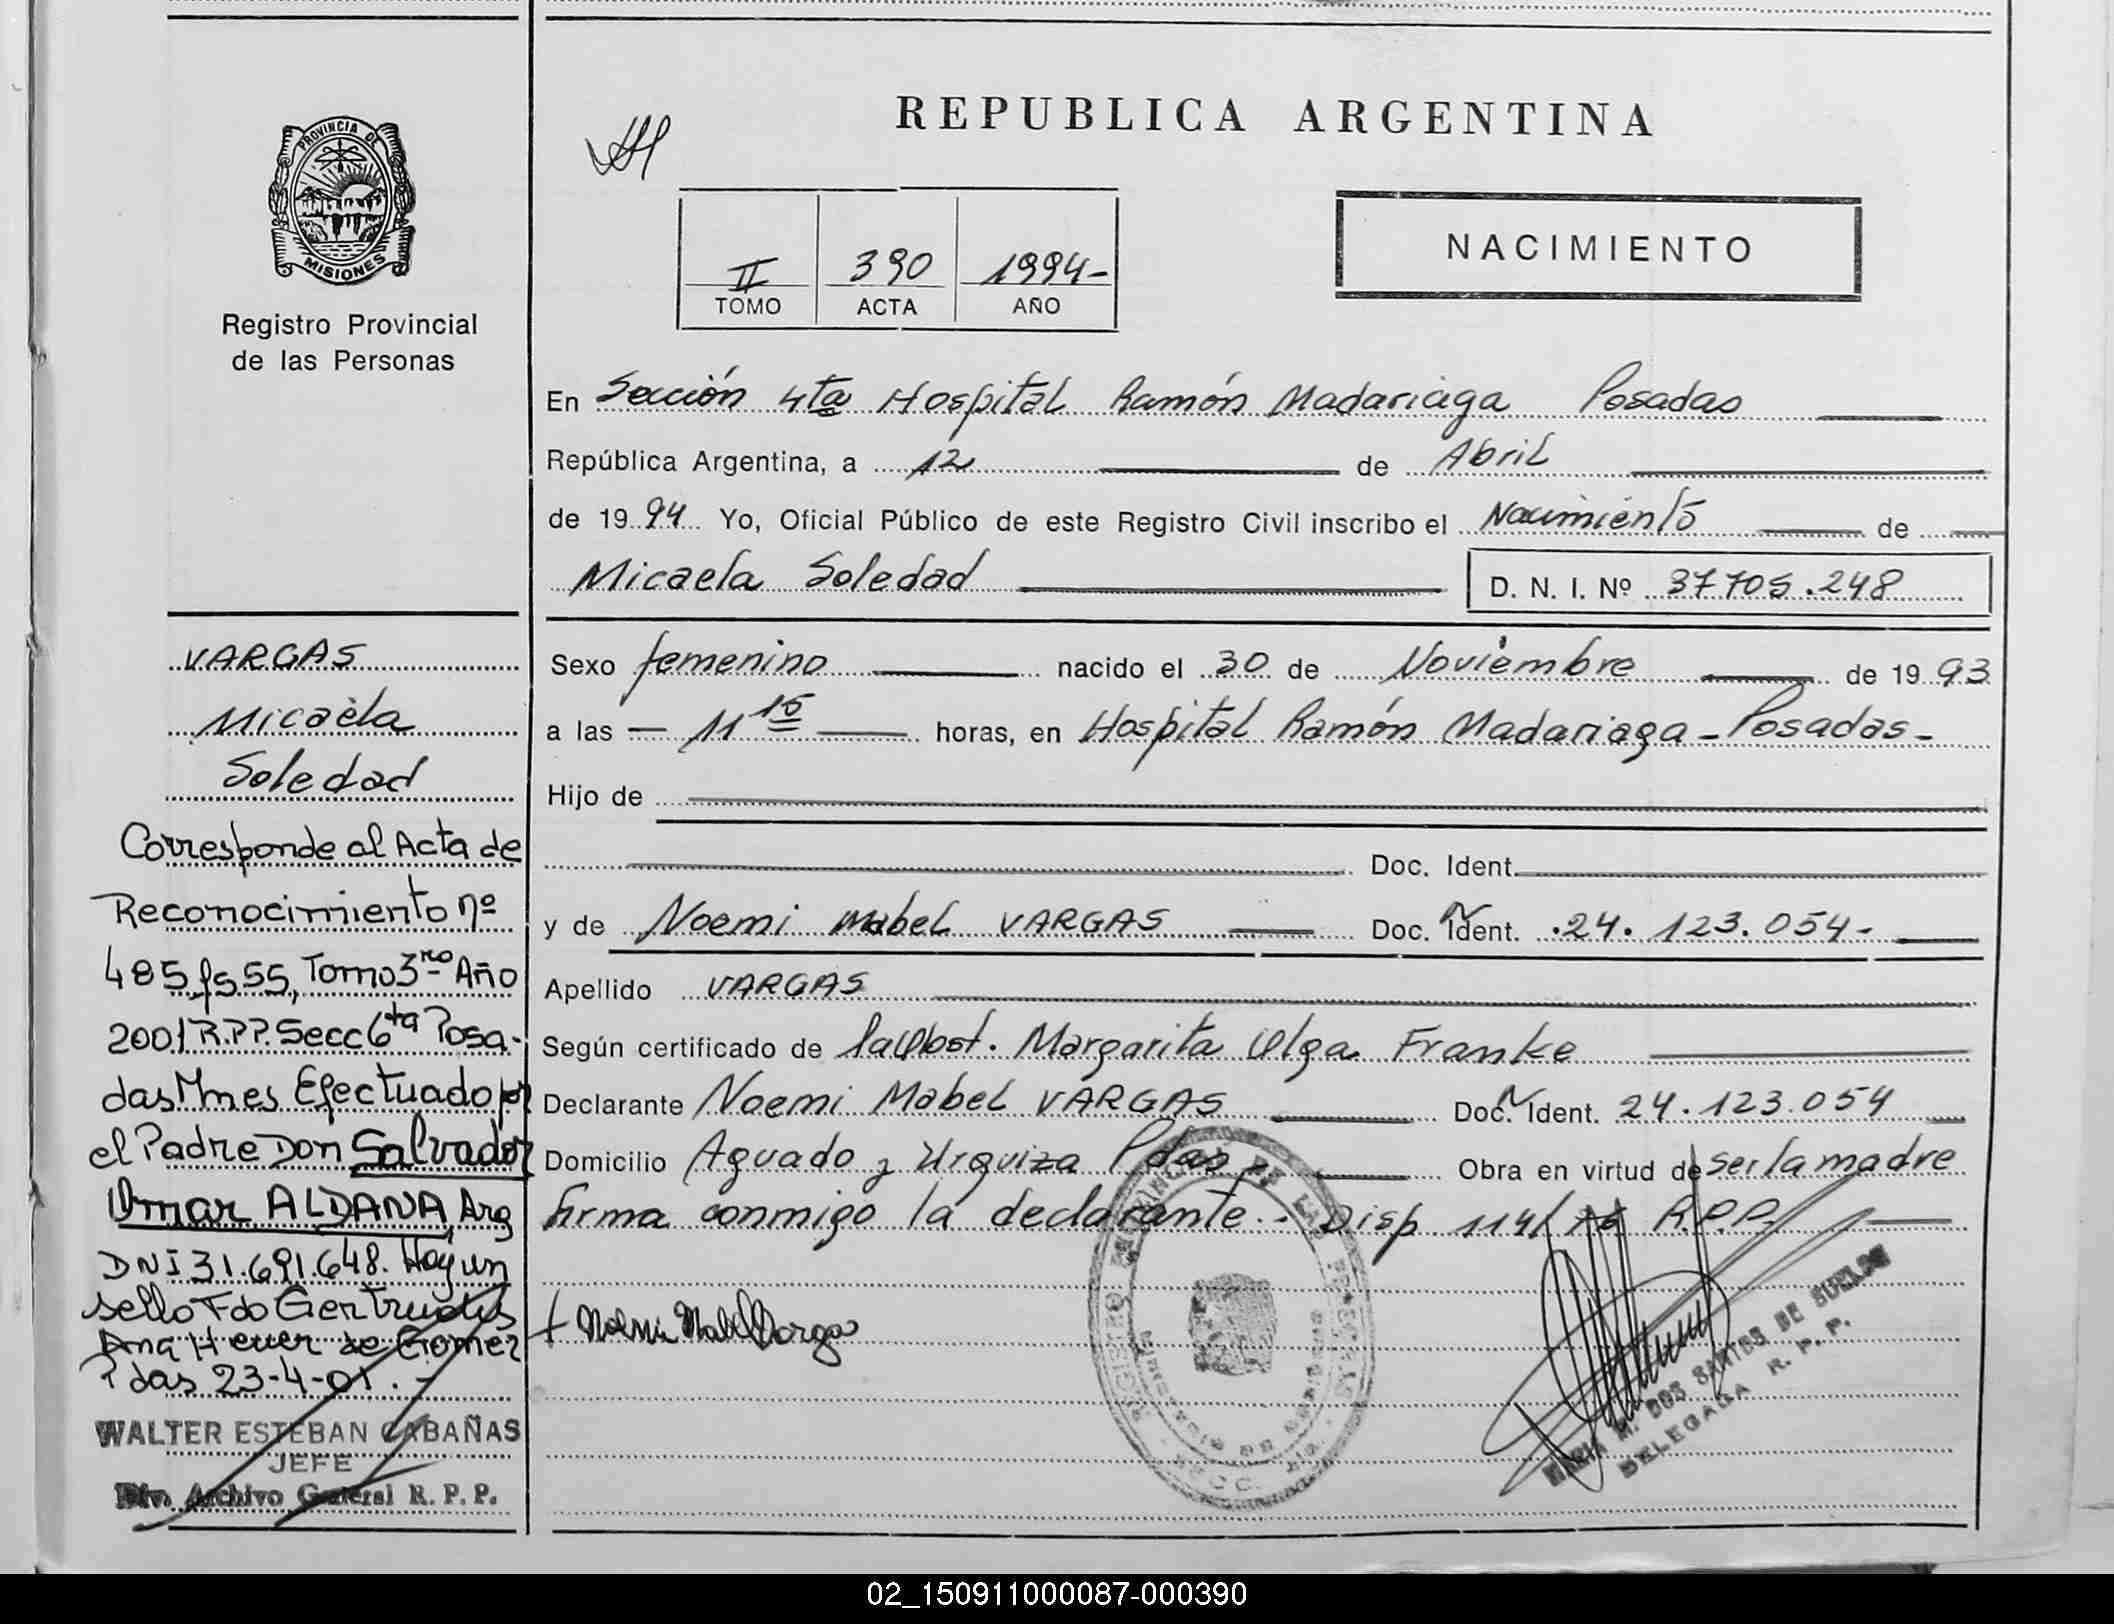 REPUBLICA ARGENTINA
PROVINCIA DE
MISIONES
Registro Provincial
de las Personas
II 390 1994-
TOMO ACTA AÑO
NACIMIENTO
En Sección 4ta Hospital Ramón Madariaga Posadas
República Argentina, a 12 de Abril
de 1994 Yo, Oficial Público de este Registro Civil inscribo el Nacimiento de
Micaela Soledad D. N. I. Nº 37705.248
Sexo femenino nacido el 30 de Noviembre de 1993
a las 11 15 horas, en Hospital Ramón Madariaga - Posadas -
Hijo de
Doc. Ident.
y de Noemi Mabel VARGAS Doc. Ident. 24.123.054-
Apellido VARGAS
Según certificado de Margarita Olga Franke
Declarante Noemi Mabel VARGAS Doc. Ident. 24.123.054
Domicilio Aguado y Urquiza Pdas - Obra en virtud de ser la madre
firma conmigo la declarante.- Disp. 114/76 R.P.P.
Noemi Mabel Vargas
MARIA M. DOS SANTOS DE
DELEGADA R. P. P.
VARGAS
Micaela
Soledad
Corresponde al Acta de
Reconocimiento nº
485 fs 55, Tomo 3ro Año
2001 R.P.P. Secc 6ta Posa-
das Mnes Efectuado por
el Padre Don Salvador
Omar ALDANA, Arg
DNI 31.691.648. Hay un
sello Fdo Gertrudis
Ana Heuer de Gomez
Pdas 23-4-01.-
WALTER ESTEBAN CABAÑAS
JEFE
Div. Archivo General R. P. P.
02_150911000087-000390